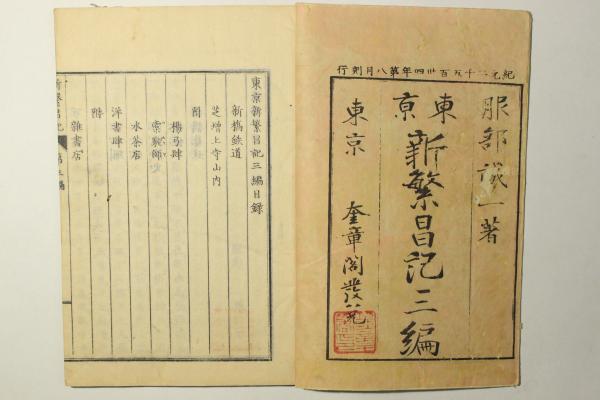 紀元二千五百卅四年第八月刻行
服部誠一著
東京新繁昌記三編
東京 奎章閣發兌
東京新繁昌記三編目録
新橋鉄道
芝増上寺山内
附
楊弓肆
水茶店
洋書肆
附
雜書店
新繁昌記 第三編